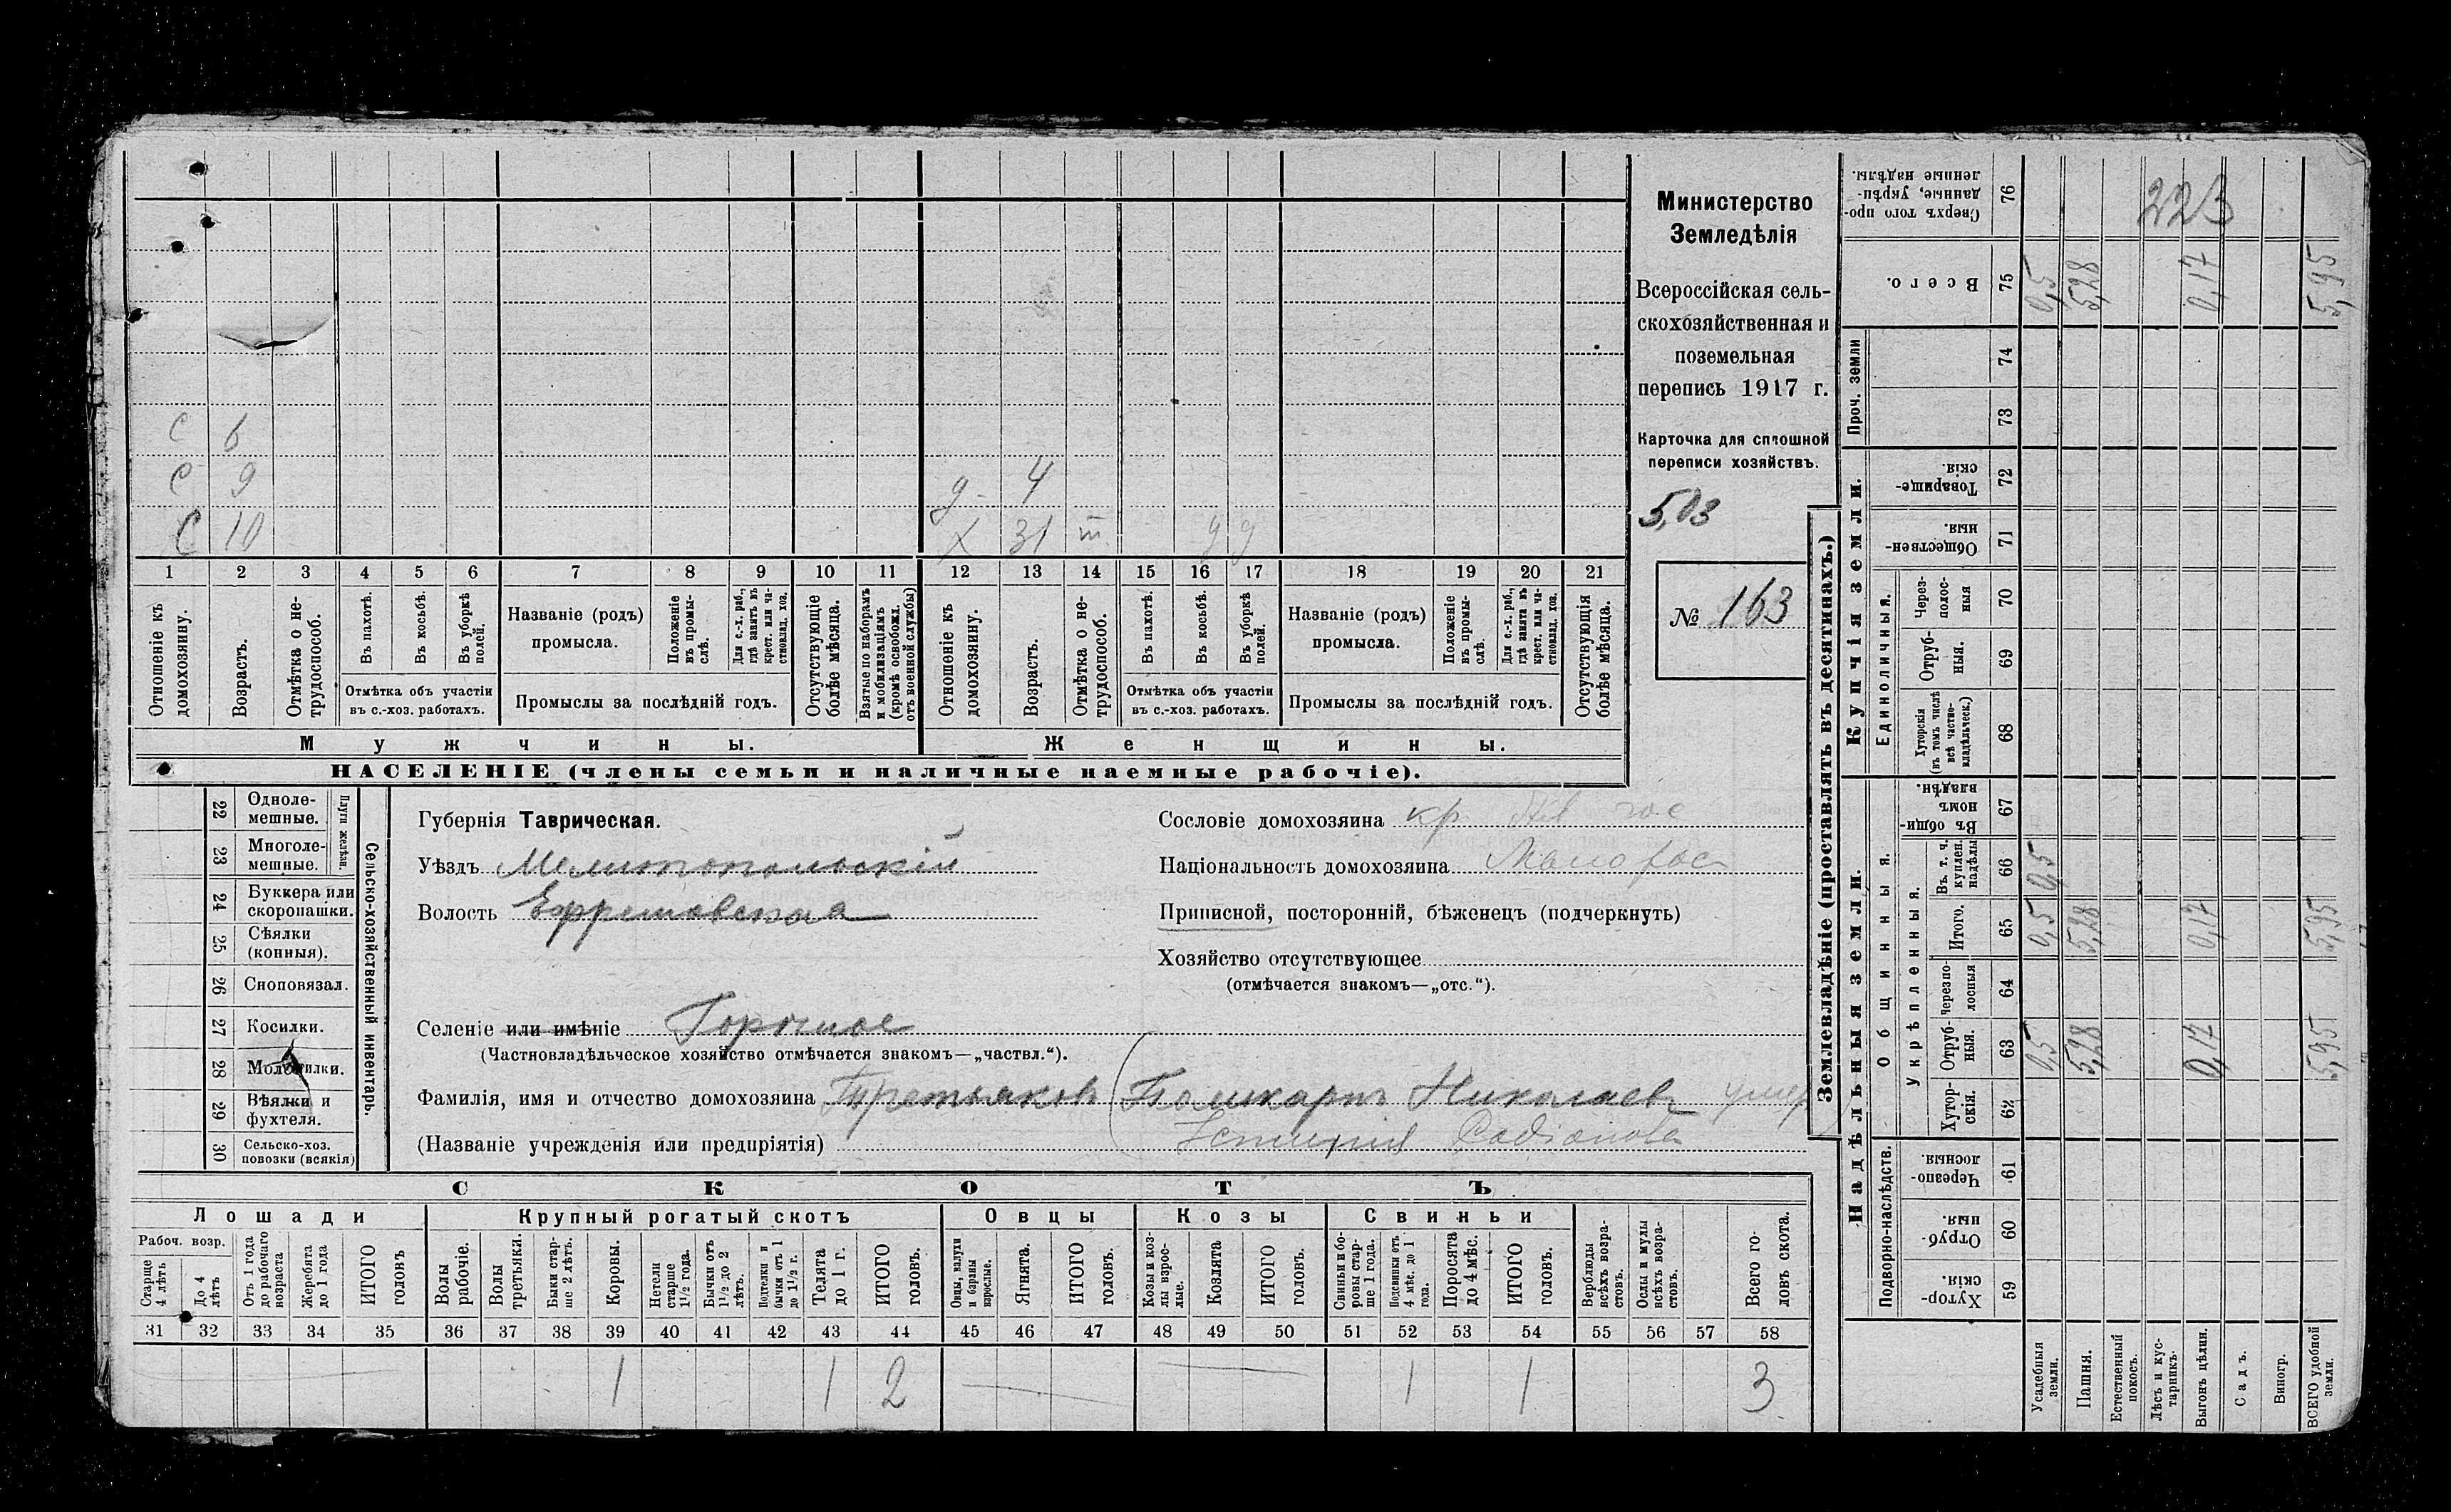 с 6
с 9
С 10
д. 4
х 31 т. у у
1 2 3 4 5 6 7 8 9 10 11 12 13 14 15 16 17 18 19 20 21
Отношеніе къ домохозяину.
Возрастъ.
Отмѣтка о не-
трудоспособ.
Въ пахотѣ.
Въ косьбѣ.
Въ уборкѣ полей.
Отмѣтка объ участіи
въ с.-хоз. работахъ.
Названіе (родъ)
промысла.
Положеніе въ промы-
слѣ.
Для с.-х. раб.,
гдѣ занятъ въ
крест. или ча-
стновлад. хоз.
Промыслы за послѣдній годъ.
Отсутствующіе
болѣе мѣсяца.
Взятые по наборамъ
и мобилизаціямъ
(кромѣ освобожд.
отъ военной службы)
Отношеніе къ
домохозяину.
Возрастъ.
Отмѣтка о не-
трудоспособ.
Въ пахотѣ.
Въ косьбѣ.
Въ уборкѣ
полей.
Отмѣтка объ участіи
въ с.-хоз. работахъ.
Названіе (родъ)
промысла.
Положеніе
въ промы-
слѣ.
Для с.-х. раб.,
гдѣ занята въ
крест. или ча-
стновлад. хоз.
Промыслы за послѣдній годъ.
Отсутствующія
болѣе мѣсяца.
Мужчины.
Женщины.
НАСЕЛЕНІЕ (члены семьи и наличные наемные рабочіе).
Министерство
Земледѣлія
Всероссійская сель-
скохозяйственная и
поземельная
перепись 1917 г.
Карточка для сплошной
переписи хозяйствъ.
5,03
№ 163
Сельско-хозяйственный инвентарь.
Плуги желѣзн.
22 Одноле-
мешные.
23 Многоле-
мешные.
24 Буккера или
скоропашки.
25 Сѣялки
(конныя).
26 Сноповязал.
27 Косилки.
28 Молотилки.
29 Вѣялки и
фухтеля.
30 Сельско-хоз.
повозки (всякія)
Губернія Таврическая.
Уѣздъ Мелитопольскій
Волость Ефремовская
Селеніе или имѣніе Горѣлое
(Частновладѣльческое хозяйство отмѣчается знакомъ—„частвл.“).
Фамилія, имя и отчество домохозяина Третьяковъ (Поликарпъ Николаевъ умер
(Названіе учрежденія или предпріятія) Родіонова
Сословіе домохозяина кр
Національность домохозяина Малорос
Приписной, посторонній, бѣженецъ (подчеркнуть)
Хозяйство отсутствующее
(отмѣчается знакомъ—„отс.“).
СКОТЪ
Лошади
Рабоч. возр.
Старше
4 лѣтъ
До 4
лѣтъ
Отъ 1 года
до рабочаго
возраста
Жеребята
до 1 года
ИТОГО
головъ
Крупный рогатый скотъ
Волы
рабочіе.
Волы
третьяки.
Быки стар-
ше 2 лѣтъ.
Коровы.
Нетели
старше
1½ года.
Бычки отъ
1½ до 2
лѣтъ.
Подтелки и
бычки отъ 1
до 1½ г.
Телята
до 1 г.
ИТОГО
головъ.
Овцы
Овцы, валухи
и бараны
взрослые.
Ягнята.
ИТОГО
головъ.
Козы
Козы и коз-
лы взрос-
лые.
Козлята
ИТОГО
головъ.
Свиньи
Свиньи и бо-
ровы стар-
ше 1 года.
Подсвинки отъ
4 мѣс. до 1
года.
Поросята
до 4 мѣс.
ИТОГО
головъ.
Верблюды
всѣхъ возра-
стовъ.
Ослы и мулы
всѣхъ возра-
стовъ.
Всего го-
ловъ скота.
31 32 33 34 35 36 37 38 39 40 41 42 43 44 45 46 47 48 49 50 51 52 53 54 55 56 57 58
— 1 1 2 — — 1 1 3
Землевладѣніе (проставлять въ десятинахъ.)
Сверхъ того про-
данные, укрѣп-
ленные надѣлы.
76
223
Всего.
75 0,5 5,28 0,17 5,95
Проч. земли
74
73
Купчія земли.
Товарище-
скія.
72
Обществен-
ныя.
71
Единоличныя.
Через-
полос-
ныя
70
Отруб-
ныя.
69
Хуторскія
(въ томъ числѣ
всѣ частно-
владѣльческ.)
68
Надѣльныя земли.
Общинныя.
Въ общин-
номъ
владѣн.
67
Укрѣпленныя.
Въ т. ч.
куплен.
надѣлы
66 0,5
Итого.
65 0,5 5,28 0,17 5,95
Черезпо-
лосныя
64
Отруб-
ныя.
63 0,5 5,28 0,17 5,95
Хутор-
скія.
62
Подворно-наслѣдств.
Черезпо-
лосныя.
61
Отруб-
ныя.
60
Хутор-
скія.
59
Усадебныя
земли.
Пашня.
Естественный
покосъ.
Лѣсъ и кус-
тарникъ.
Выгонъ цѣлин.
Садъ.
Виногр.
ВСЕГО удобной
земли.